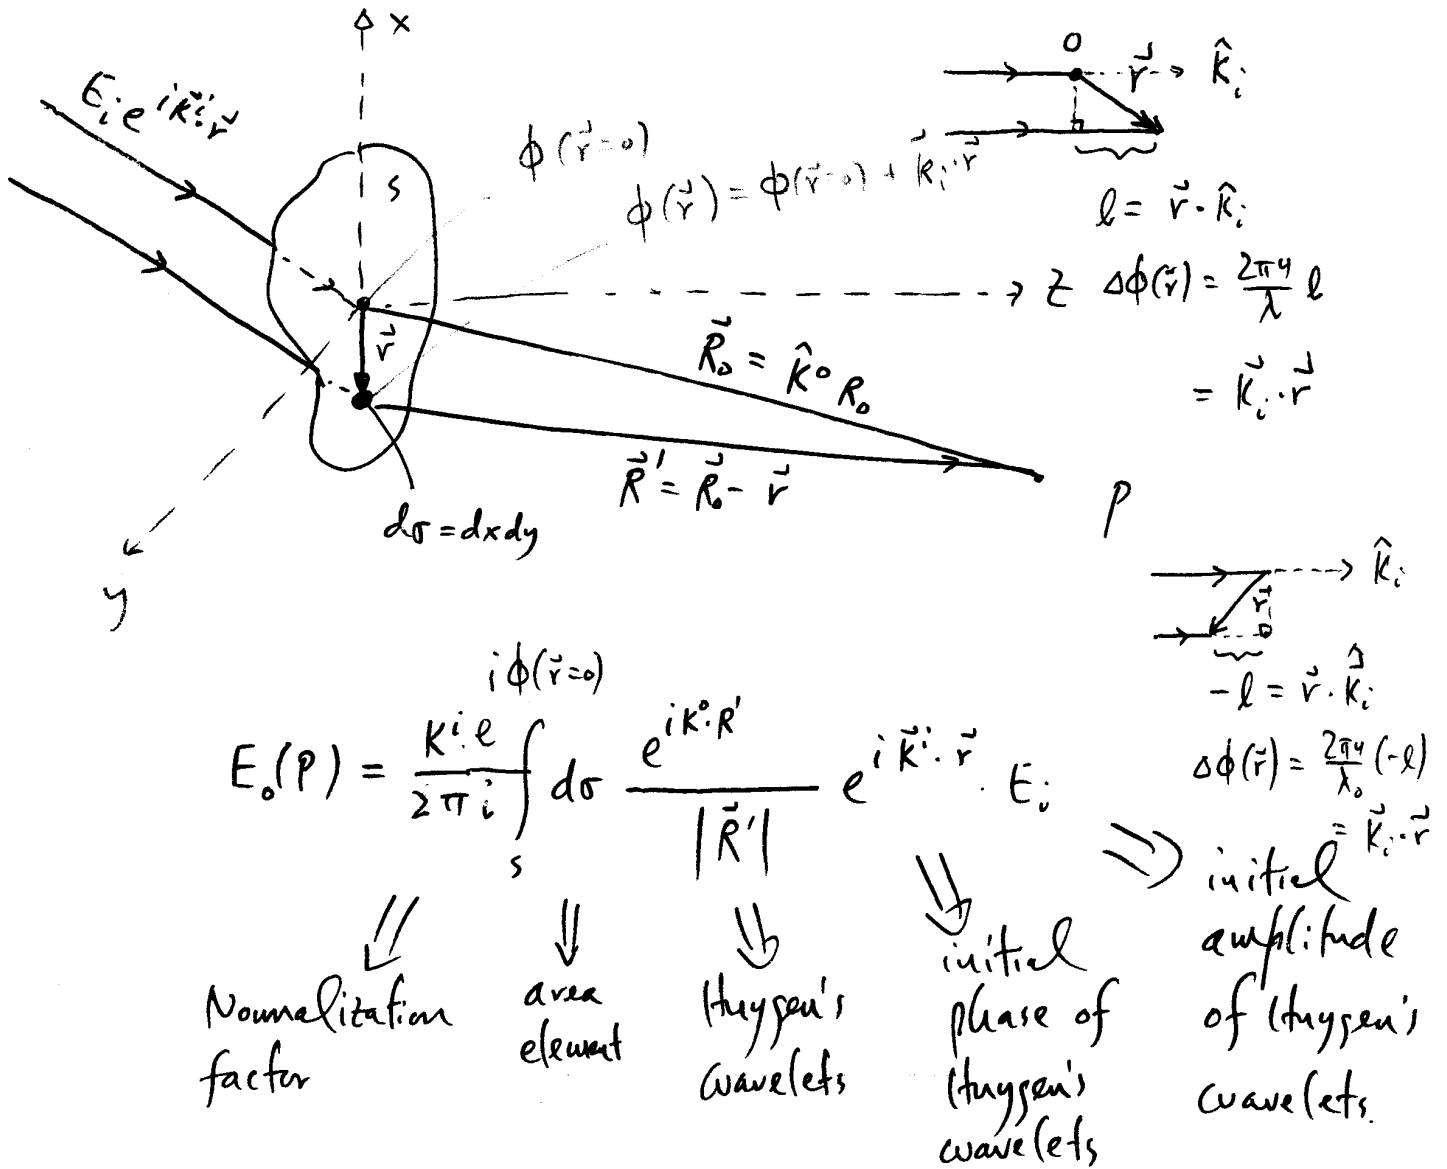 x
E_i e^{i\vec{k}^i·\vec{r}}
S
ϕ(\vec{r}=0)
ϕ(\vec{r}) = ϕ(\vec{r}=0) + \vec{k}_i·\vec{r}
O
\vec{r}
\hat{k}_i
l = \vec{r}·\hat{k}_i
z
Δϕ(\vec{r}) = \frac{2πn}{λ} l
= \vec{k}_i·\vec{r}
\vec{r}
\vec{R}_0 = \hat{k}^0 R_0
\vec{R}' = \vec{R}_0 - \vec{r}
P
dσ = dxdy
y
\hat{k}_i
\vec{r}
-l = \vec{r}·\hat{k}_i
Δϕ(\vec{r}) = \frac{2πn}{λ_0} (-l)
= \vec{k}_i·\vec{r}
E_0(P) = \frac{k^i·e^{iϕ(\vec{r}=0)}}{2πi} ∫_S dσ \frac{e^{ik^0·R'}}{|\vec{R}'|} e^{i\vec{k}^i·\vec{r}}·E_i
Normalization
factor
area
element
Huygen's
wavelets
initial
phase of
Huygen's
wavelets
initial
amplitude
of Huygen's
wavelets.